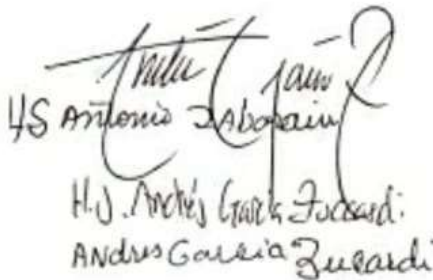 HS Antonio Zabarain
H.S. Andrés García Zuccardi.
ANDRES García Zuccardi